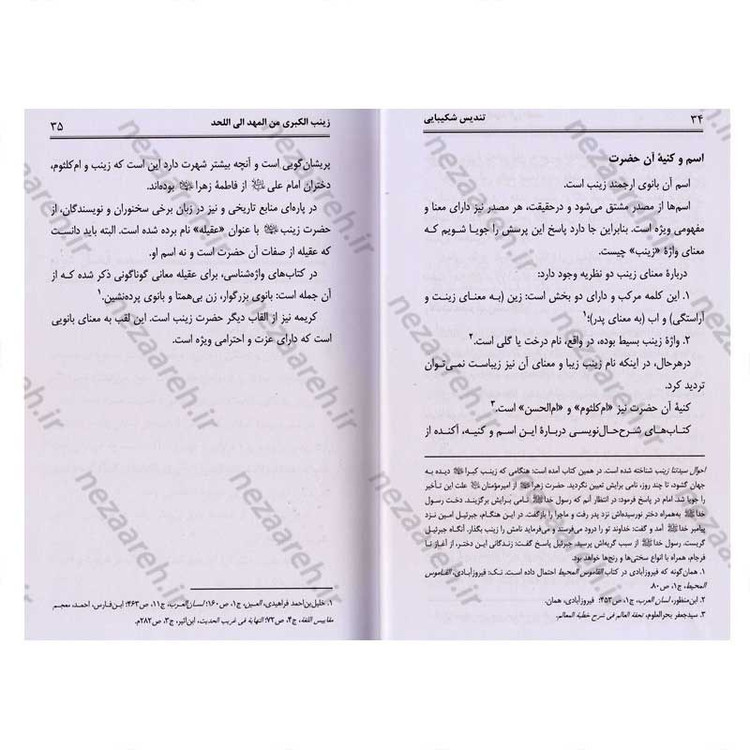 ۳۴
تندیس شکیبایی
اسم و کنیهٔ آن حضرت
اسم آن بانوی ارجمند زینب است.
اسم‌ها از مصدر مشتق می‌شود و درحقیقت، هر مصدر نیز دارای معنا و
مفهومی ویژه است. بنابراین جا دارد پاسخ این پرسش را جویا شویم که
معنای واژهٔ «زینب» چیست.
دربارهٔ معنای زینب دو نظریه وجود دارد:
۱. این کلمه مرکب و دارای دو بخش است: زین (به معنای زینت و
آراستگی) و اب (به معنای پدر)؛۱
۲. واژهٔ زینب بسیط بوده، در واقع، نام درخت یا گلی است.۲
درهرحال، در اینکه نام زینب زیبا و معنای آن نیز زیباست نمی‌توان
تردید کرد.
کنیهٔ آن حضرت نیز «ام‌کلثوم» و «ام‌الحسن» است.۳
کتاب‌های شرح‌حال‌نویسی دربارهٔ این اسم و کنیه، آکنده از
احوال سیدتنا زینب شناخته شده است. در همین کتاب آمده است: هنگامی که زینب کبرا دیده به
جهان گشود، تا چند روز، نامی برایش تعیین نگردید. حضرت زهرا از امیرمؤمنان علت این تأخیر
را جویا شد. امام در پاسخ فرمود: در انتظار آنم که رسول خدا نامی برایش برگزیند. دخت رسول
خدا به‌همراه دختر نورسیده‌اش نزد پدر رفت و ماجرا را بازگفت. در این هنگام، جبرئیل امین نزد
پیامبر خدا آمد و گفت: خداوند تو را درود می‌فرستد و می‌فرماید نامش را زینب بگذار. آنگاه جبرئیل
گریست. رسول خدا از سبب گریه‌اش پرسید. جبرئیل پاسخ گفت: زندگانی این دختر، از آغاز تا
فرجام، همراه با انواع سختی‌ها و رنج‌ها خواهد بود.
۱. همان‌گونه که فیروزآبادی در کتاب القاموس المحیط احتمال داده است. نک: فیروزآبادی، القاموس
المحیط، ج۱، ص۸۰.
۲. ابن‌منظور، لسان العرب، ج۱، ص۴۵۳؛ فیروزآبادی، همان.
۳. سیدجعفر بحرالعلوم، تحفة العالم فی شرح خطبة المعالم.
زینب الکبری من المهد الی اللحد
۳۵
پریشان‌گویی است و آنچه بیشتر شهرت دارد این است که زینب و ام‌کلثوم،
دختران امام علی از فاطمهٔ زهرا بوده‌اند.
در پاره‌ای منابع تاریخی و نیز در زبان برخی سخنوران و نویسندگان، از
حضرت زینب با عنوان «عقیله» نام برده شده است. البته باید دانست
که عقیله از صفات آن حضرت است و نه اسم او.
در کتاب‌های واژه‌شناسی، برای عقیله معانی گوناگونی ذکر شده که از
آن جمله است: بانوی بزرگوار، زن بی‌همتا و بانوی پرده‌نشین.۱
کریمه نیز از القاب دیگر حضرت زینب است. این لقب به معنای بانویی
است که دارای عزت و احترامی ویژه است.
۱. خلیل‌بن‌احمد فراهیدی، العین، ج۱، ص۱۶۰؛ لسان العرب، ج۱۱، ص۴۶۳؛ ابن‌فارس، احمد، معجم
مقاییس اللغة، ج۴، ص۷۲؛ النهایة فی غریب الحدیث، ابن‌اثیر، ج۳، ص۲۸۲م.
nezaareh.ir
nezaareh.ir
nezaareh.ir
nezaareh.ir
nezaareh.ir
nezaareh.ir